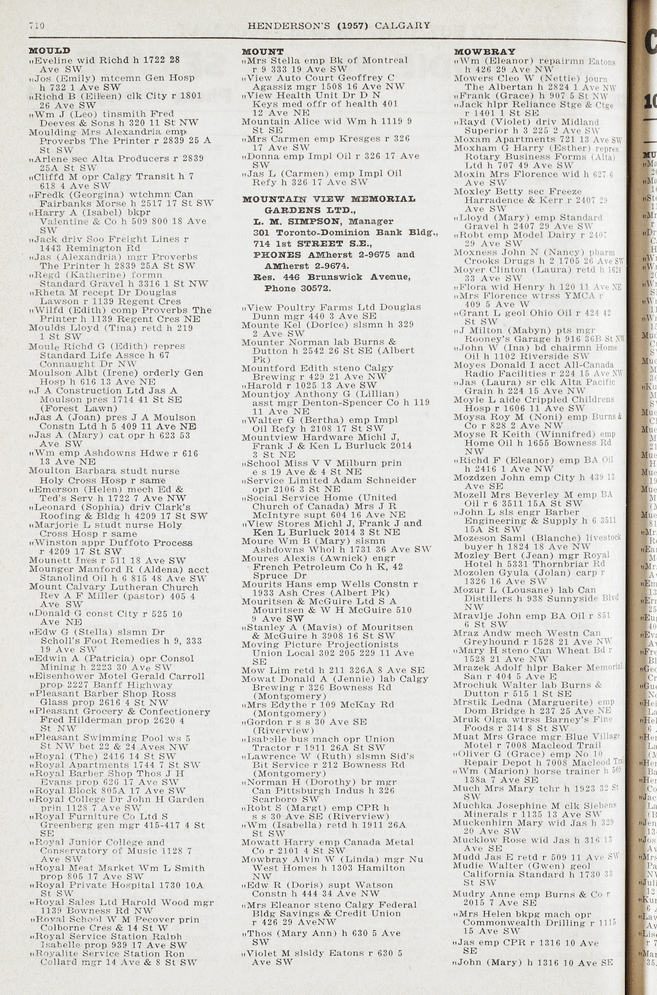 710
HENDERSON'S (1957) CALGARY
MOULD
„Eveline wid Richd h 1722 28
Ave SW
„Jos (Emily) mtcemn Gen Hosp
h 732 1 Ave SW
„Richd B (Eileen) clk City r 1801
26 Ave SW
„Wm J (Leo) tinsmith Fred
Deeves & Sons h 320 11 St NW
Moulding Mrs Alexandria emp
Proverbs The Printer r 2839 25 A
St SW
„Arlene sec Alta Producers r 2839
25A St SW
„Cliffd M opr Calgy Transit h 7
618 4 Ave SW
„Fredk (Georgina) wtchmn Can
Fairbanks Morse h 2517 17 St SW
„Harry A (Isabel) bkpr
Valentine & Co h 509 800 18 Ave
SW
„Jack driv Soo Freight Lines r
1443 Remington Rd
„Jas (Alexandria) mgr Proverbs
The Printer h 2839 25A St SW
„Regd (Katherine) formn
Standard Gravel h 3316 1 St NW
„Rheta M recept Dr Douglas
Lawson r 1139 Regent Cres
„Wilfd (Edith) comp Proverbs The
Printer h 1139 Regent Cres NE
Moulds Lloyd (Tina) retd h 219
1 St SW
Moule Richd G (Edith) repres
Standard Life Assce h 67
Connaught Dr NW
Moulson Albt (Irene) orderly Gen
Hosp h 616 13 Ave NE
„J A Construction Ltd Jas A
Moulson pres 1714 41 St SE
(Forest Lawn)
„Jas A (Joan) pres J A Moulson
Constn Ltd h 5 409 11 Ave NE
„Jas A (Mary) cat opr h 623 53
Ave SW
„Wm emp Ashdowns Hdwe r 616
13 Ave NE
Moulton Barbara studt nurse
Holy Cross Hosp r same
„Emerson (Helen) mech Ed &
Ted's Serv h 1722 7 Ave NW
„Leonard (Sophia) driv Clark's
Roofing & Bldg h 4209 17 St SW
„Marjorie L studt nurse Holy
Cross Hosp r same
„Winston appr Duffoto Process
r 4209 17 St SW
Mounett Ines r 511 18 Ave SW
Mounger Manford R (Aldena) acct
Stanolind Oil h 6 815 48 Ave SW
Mount Calvary Lutheran Church
Rev A F Miller (pastor) 405 4
Ave SW
„Donald G const City r 525 10
Ave NE
„Edw G (Stella) slsmn Dr
Scholl's Foot Remedies h 9, 333
19 Ave SW
„Edwin A (Patricia) opr Consol
Mining h 2223 30 Ave SW
„Eisenhower Motel Gerald Carroll
prop 2227 Banff Highway
„Pleasant Barber Shop Ross
Glass prop 2616 4 St NW
„Pleasant Grocery & Confectionery
Fred Hilderman prop 2620 4
St NW
„Pleasant Swimming Pool ws 5
St NW bet 22 & 24 Aves NW
„Royal (The) 2416 14 St SW
„Royal Apartments 1744 7 St SW
„Royal Barber Shop Thos J H
Evans prop 626 17 Ave SW
„Royal Block 805A 17 Ave SW
„Royal College Dr John H Garden
prin 1128 7 Ave SW
„Royal Furniture Co Ltd S
Greenberg gen mgr 415-417 4 St
SE
„Royal Junior College and
Conservatory of Music 1128 7
Ave SW
„Royal Meat Market Wm L Smith
prop 805 17 Ave SW
„Royal Private Hospital 1730 10A
St SW
„Royal Sales Ltd Harold Wood mgr
1139 Bowness Rd NW
„Royal School W M Pecover prin
Colborne Cres & 14 St W
„Royal Service Station Ralph
Isabelle prop 939 17 Ave SW
„Royalite Service Station Ron
Collard mgr 14 Ave & 8 St SW
MOUNT
„Mrs Stella emp Bk of Montreal
r 9 333 19 Ave SW
„View Auto Court Geoffrey C
Agassiz mgr 1508 16 Ave NW
„View Health Unit Dr D N
Keys med offr of health 401
12 Ave NE
Mountain Alice wid Wm h 1119 9
St SE
„Mrs Carmen emp Kresges r 326
17 Ave SW
„Donna emp Impl Oil r 326 17 Ave
SW
„Jas L (Carmen) emp Impl Oil
Refy h 326 17 Ave SW
MOUNTAIN VIEW MEMORIAL
GARDENS LTD.,
L. M. SIMPSON, Manager
301 Toronto-Dominion Bank Bldg.,
714 1st STREET S.E.,
PHONES AMherst 2-9675 and
AMherst 2-9674.
Res. 446 Brunswick Avenue,
Phone 30572.
„View Poultry Farms Ltd Douglas
Dunn mgr 440 3 Ave SE
Mounte Kel (Dorice) slsmn h 329
2 Ave SW
Mounter Norman lab Burns &
Dutton h 2542 26 St SE (Albert
Pk)
Mountford Edith steno Calgy
Brewing r 429 21 Ave NW
„Harold r 1025 13 Ave SW
Mountjoy Anthony G (Lillian)
asst mgr Denton-Spencer Co h 119
11 Ave NE
„Walter G (Bertha) emp Impl
Oil Refy h 2108 17 St SW
Mountview Hardware Michl J,
Frank J & Ken L Burluck 2014
3 St NE
„School Miss V V Milburn prin
e s 19 Ave & 4 St NE
„Service Limited Adam Schneider
opr 2106 3 St NE
„Social Service Home (United
Church of Canada) Mrs J R
McIntyre supt 604 16 Ave NE
„View Stores Michl J, Frank J and
Ken L Burluck 2014 3 St NE
Moure Wm B (Mary) slsmn
Ashdowns Whol h 1731 36 Ave SW
Moures Alexis (Awniek) engr
French Petroleum Co h K, 42
Spruce Dr
Mourits Hans emp Wells Constn r
1933 Ash Cres (Albert Pk)
Mouritsen & McGuire Ltd S A
Mouritsen & W H McGuire 510
9 Ave SW
„Stanley A (Mavis) of Mouritsen
& McGuire h 3908 16 St SW
Moving Picture Projectionists
Union Local 302 205 229 11 Ave
SE
Mow Lim retd h 211 326A 8 Ave SE
Mowat Donald A (Jennie) lab Calgy
Brewing r 326 Bowness Rd
(Montgomery)
„Mrs Edythe r 109 McKay Rd
(Montgomery)
„Gordon r s s 30 Ave SE
(Riverview)
„Isabelle bus mach opr Union
Tractor r 1911 26A St SW
„Lawrence W (Ruth) slsmn Sid's
Bit Service r 212 Bowness Rd
(Montgomery)
„Norman H (Dorothy) br mgr
Can Pittsburgh Indus h 326
Scarboro SW
„Robt S (Margt) emp CPR h
s s 30 Ave SE (Riverview)
„Wm (Isabella) retd h 1911 26A
St SW
Mowatt Harry emp Canada Metal
Co r 2101 4 St SW
Mowbray Alvin W (Linda) mgr Nu
West Homes h 1303 Hamilton
NW
„Edw R (Doris) supt Watson
Constn h 444 34 Ave NW
„Mrs Eleanor steno Calgy Federal
Bldg Savings & Credit Union
r 426 29 AveNW
„Thos (Mary Ann) h 630 5 Ave
SW
„Violet M slsldy Eatons r 630 5
Ave SW
MOWBRAY
„Wm (Eleanor) repairmn Eatons
h 426 29 Ave NW
Mowers Cleo W (Nettie) journ
The Albertan h 2824 1 Ave NW
„Frank (Grace) h 907 5 St NW
„Jack hlpr Reliance Stge & Ctge
r 1401 1 St SE
„Rayd (Violet) driv Midland
Superior h 3 225 2 Ave SW
Moxam Apartments 721 13 Ave SW
Moxham G Harry (Esther) repres
Rotary Business Forms (Alta)
Ltd h 707 49 Ave SW
Moxin Mrs Florence wid h 627 6
Ave SW
Moxley Betty sec Freeze
Harradence & Kerr r 2407 29
Ave SW
„Lloyd (Mary) emp Standard
Gravel h 2407 29 Ave SW
„Robt emp Model Dairy r 2407
29 Ave SW
Moxness John N (Nancy) pharm
Crooks Drugs h 2 1705 26 Ave SW
Moyer Clinton (Laura) retd h 1624
33 Ave SW
„Flora wid Henry h 120 11 Ave NE
„Mrs Florence wtrss YMCA r
409 5 Ave W
„Grant L geol Ohio Oil r 424 42
St SW
„J Milton (Mabyn) pts mgr
Rooney's Garage h 916 36B St NW
„John W (Ina) bd chairmn Home
Oil h 1102 Riverside SW
Moyes Donald I acct All-Canada
Radio Facilities r 224 15 Ave NW
„Jas (Laura) sr clk Alta Pacific
Grain h 224 15 Ave NW
Moyle L aide Crippled Childrens
Hosp r 1606 11 Ave SW
Moysa Roy M (Noni) emp Burns &
Co r 828 2 Ave NW
Moyse R Keith (Winnifred) emp
Home Oil h 1655 Bowness Rd
NW
„Richd F (Eleanor) emp BA Oil
h 2416 1 Ave NW
Mozdzen John emp City h 439 13
Ave SE
Mozell Mrs Beverley M emp BA
Oil r 6 3511 15A St SW
„John L sls engr Barber
Engineering & Supply h 6 3511
15A St SW
Mozeson Saml (Blanche) livestock
buyer h 1824 18 Ave NW
Mozley Bert (Jean) mgr Royal
Hotel h 5331 Thornbriar Rd
Mozolen Gyula (Jolan) carp r
1326 16 Ave SW
Mozur L (Lousane) lab Can
Distillers h 938 Sunnyside Blvd
NW
Mravlje John emp BA Oil r 851
6 St SW
Mraz Andw mech Westn Can
Greyhound r 1528 21 Ave NW
„Mary H steno Can Wheat Bd r
1528 21 Ave NW
Mrazek Adolf hlpr Baker Memorial
San r 404 5 Ave E
Mrochuk Walter lab Burns &
Dutton r 515 1 St SE
Mrstik Ledna (Marguerite) emp
Dom Bridge h 237 25 Ave NE
Mruk Olga wtrss Barney's Fine
Foods r 314 8 St SW
Muat Mrs Grace mgr Blue Village
Motel r 7008 Macleod Trail
„Oliver G (Grace) emp No. 10
Repair Depot h 7008 Macleod Tra
„Wm (Marion) horse trainer h
138a 7 Ave SE
Much Mrs Mary tchr h 1923 32 St
SW
Muchka Josephine M clk Siebens
Minerals r 1135 13 Ave SW
Muckenhirn Mary wid Jas h 329
20 Ave SW
Mucklow Rose wid Jas h 316 13
Ave SE
Mudd Jas E retd r 509 11 Ave SW
Mudie Walter (Gwen) geol
California Standard h 1730 33
St SW
Mudry Anne emp Burns & Co r
2015 7 Ave SE
„Mrs Helen bkpg mach opr
Commonwealth Drilling r 1115
15 Ave SW
„Jas emp CPR r 1316 10 Ave
SE
„John (Mary) h 1316 10 Ave SE